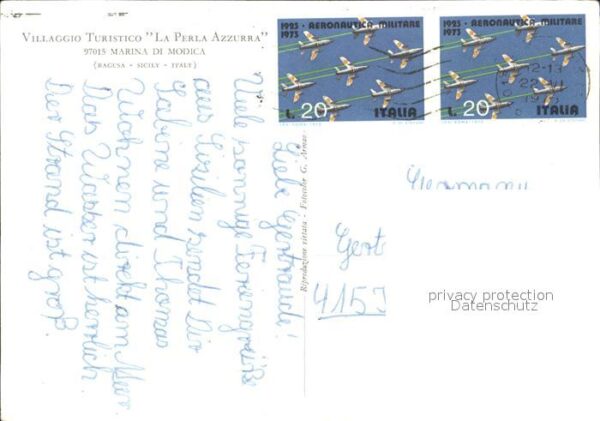 VILLAGGIO TURISTICO "LA PERLA AZZURRA"
97015 MARINA DI MODICA
(RAGUSA - SICILY - ITALY)
1923 · AERONAUTICA MILITARE
1973
L. 20 ITALIA
1923 · AERONAUTICA MILITARE
1973
L. 20 ITALIA
Riproduzione vietata - Fotocolor G. Armao
Liebe Gertraude!
Viele sonnige Feriengrüße
aus Sizilien sendet Dir
Sabine und Thomas
Wohnen direkt am Meer
Das Wasser ist herrlich.
Der Strand ist groß.
Germany
Gert
4153
privacy protection
Datenschutz